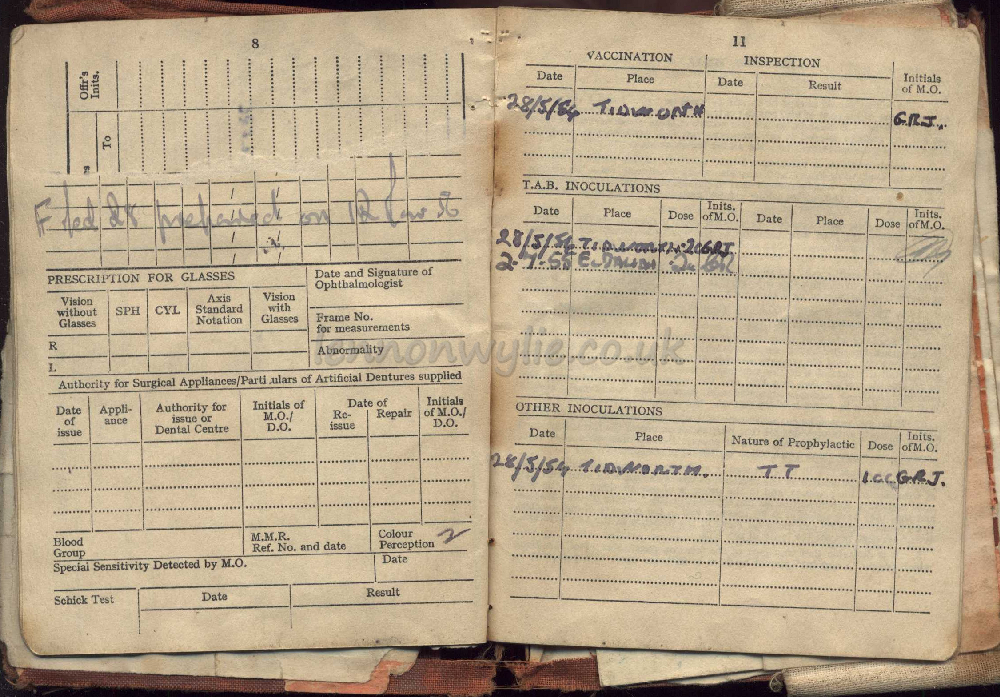 8
Offr's Inits.
To
F fed 28 prepared on 12
PRESCRIPTION FOR GLASSES
Date and Signature of Ophthalmologist
Vision without Glasses SPH CYL Axis Standard Notation Vision with Glasses
Frame No. for measurements
R
Abnormality
L
Authority for Surgical Appliances/Particulars of Artificial Dentures supplied
Date of issue Appli-ance Authority for issue or Dental Centre Initials of M.O./D.O. Date of Re-issue Repair Initials of M.O./D.O.
Blood Group M.M.R. Ref. No. and date Colour Perception 2
Special Sensitivity Detected by M.O. Date
Schick Test Date Result
11
VACCINATION INSPECTION
Date Place Date Result Initials of M.O.
28/5/54 TIDWORTH G.R.J.
T.A.B. INOCULATIONS
Date Place Dose Inits. of M.O. Date Place Dose Inits. of M.O.
28/5/54 TIDWORTH GRJ
2-7-55
lennonwylie.co.uk
OTHER INOCULATIONS
Date Place Nature of Prophylactic Dose Inits. of M.O.
28/5/54 TIDWORTH. TT 1cc G.R.J.